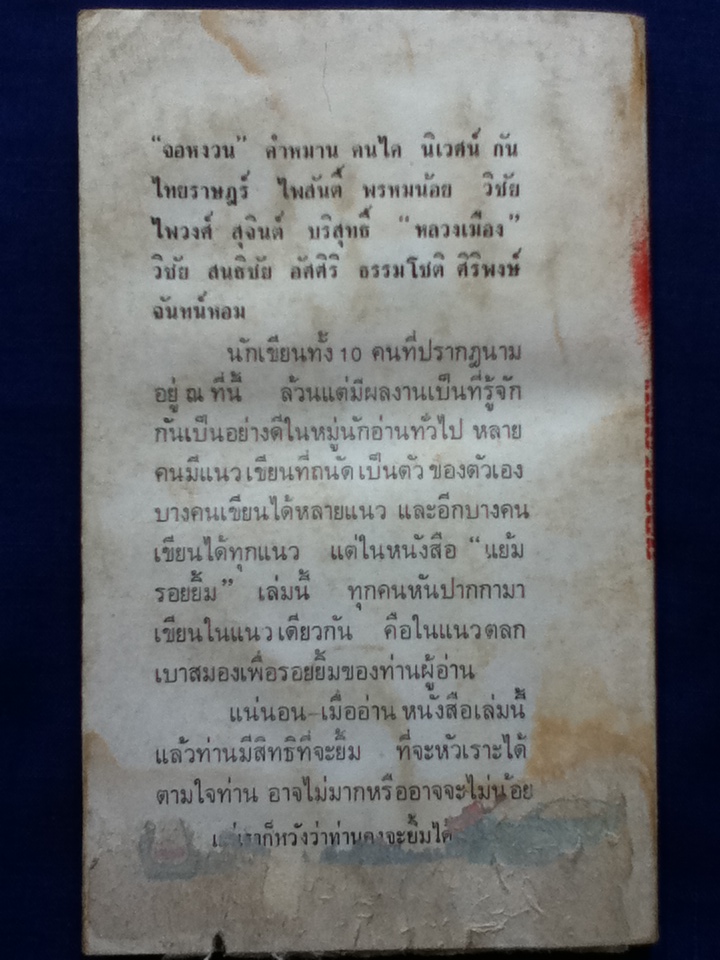 “จอหงวน” คำหมาน คนไค นิเวศน์ กัน
ไทยราษฎร์ ไพสันติ์ พรหมน้อย วิชัย
ไพวงศ์ สุจินต์ บริสุทธิ์ “หลวงเมือง”
วิชัย สนธิชัย อัศศิริ ธรรมโชติ ศิริพงษ์
จันทน์หอม
นักเขียนทั้ง 10 คนที่ปรากฏนาม
อยู่ ณ ที่นี้ ล้วนแต่มีผลงานเป็นที่รู้จัก
กันเป็นอย่างดีในหมู่นักอ่านทั่วไป หลาย
คนมีแนวเขียนที่ถนัดเป็นตัวของตัวเอง
บางคนเขียนได้หลายแนว และอีกบางคน
เขียนได้ทุกแนว แต่ในหนังสือ “แย้ม
รอยยิ้ม” เล่มนี้ ทุกคนหันปากกามา
เขียนในแนวเดียวกัน คือในแนวตลก
เบาสมองเพื่อรอยยิ้มของท่านผู้อ่าน
แน่นอน–เมื่ออ่านหนังสือเล่มนี้
แล้วท่านมีสิทธิที่จะยิ้ม ที่จะหัวเราะได้
ตามใจท่าน อาจไม่มากหรืออาจจะไม่น้อย
แต่เราก็หวังว่าท่านคงจะยิ้มได้